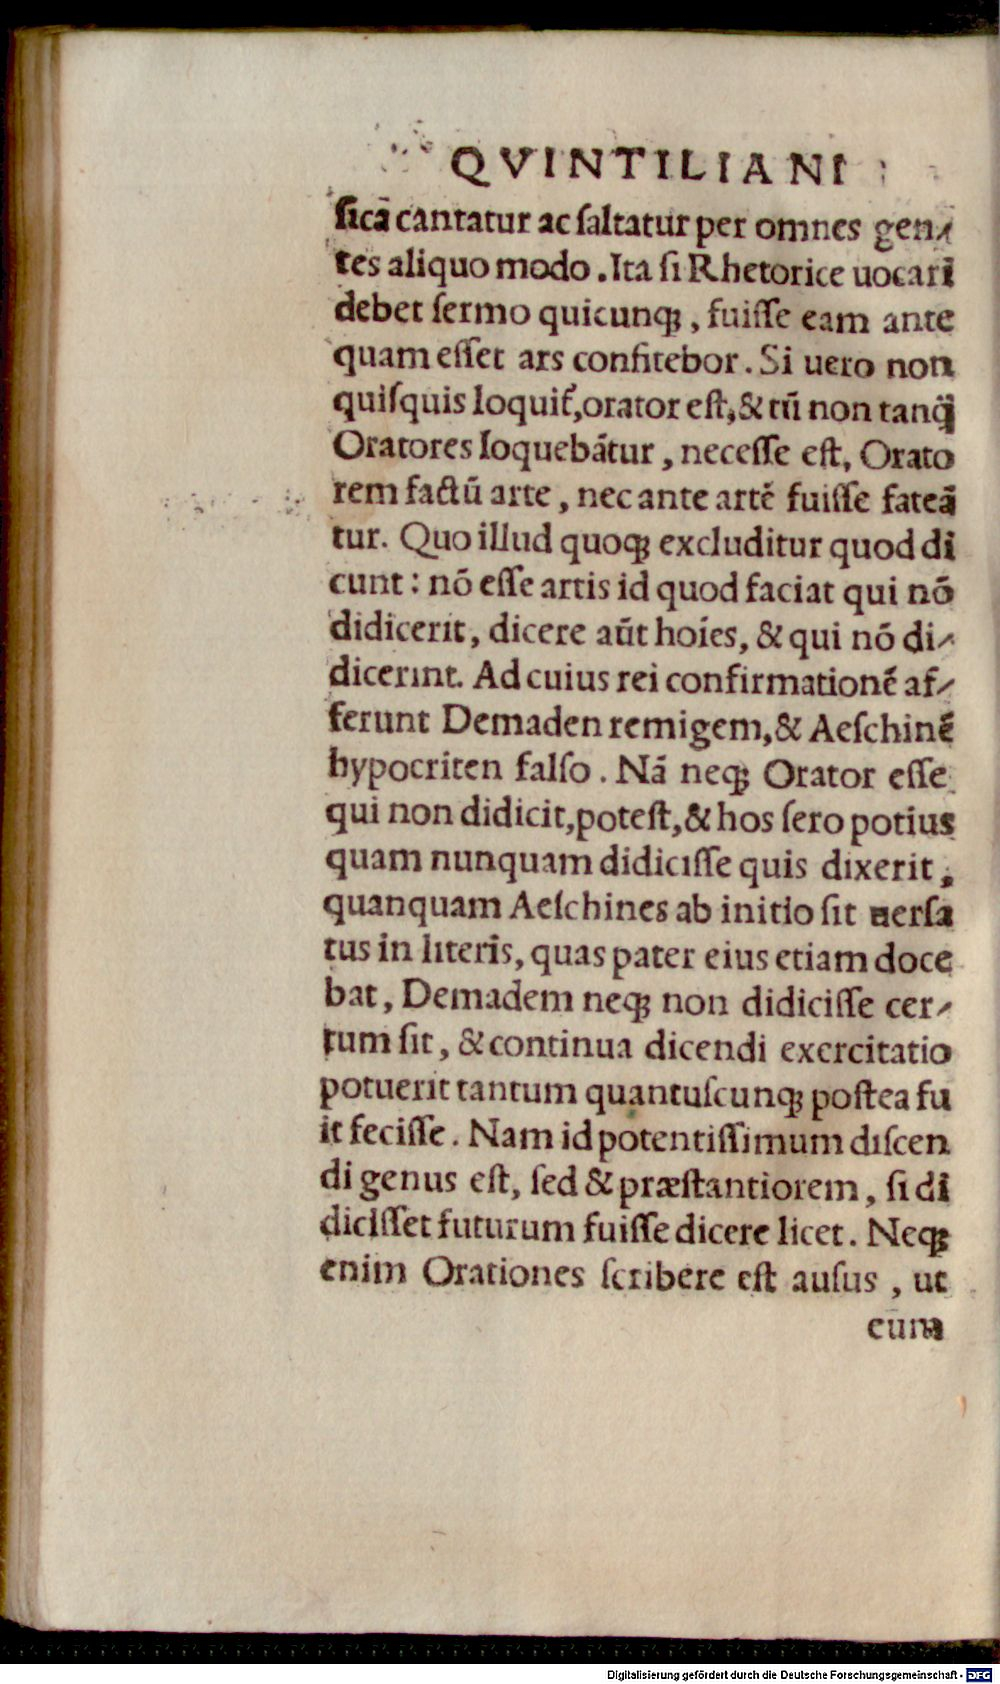 QVINTILIANI
ſicā cantatur ac ſaltatur per omnes gen-
tes aliquo modo. Ita ſi Rhetorice uocari
debet ſermo quicunqꝫ, fuiſſe eam ante
quam eſſet ars confitebor. Si uero non
quiſquis loquit᷑, orator eſt, & tū non tanq̄
Oratores loquebātur, neceſſe eſt, Orato
rem factū arte, nec ante artē fuiſſe fateā
tur. Quo illud quoqꝫ excluditur quod di
cunt: nō eſſe artis id quod faciat qui nō
didicerit, dicere aūt hoīes, & qui nō di-
dicerint. Ad cuius rei confirmationē af-
ferunt Demaden remigem, & Aeſchinē
hypocriten falſo. Nā neqꝫ Orator eſſe
qui non didicit, poteſt, & hos ſero potius
quam nunquam didiciſſe quis dixerit,
quanquam Aeſchines ab initio ſit uerſa
tus in literis, quas pater eius etiam doce
bat, Demadem neqꝫ non didiciſſe cer-
tum ſit, & continua dicendi exercitatio
potuerit tantum quantuſcunqꝫ poſtea fu
it feciſſe. Nam id potentiſſimum diſcen
di genus eſt, ſed & præſtantiorem, ſi di
diciſſet futurum fuiſſe dicere licet. Neqꝫ
enim Orationes ſcribere eſt auſus, ut
eum
Digitalisierung gefördert durch die Deutsche Forschungsgemeinschaft - DFG